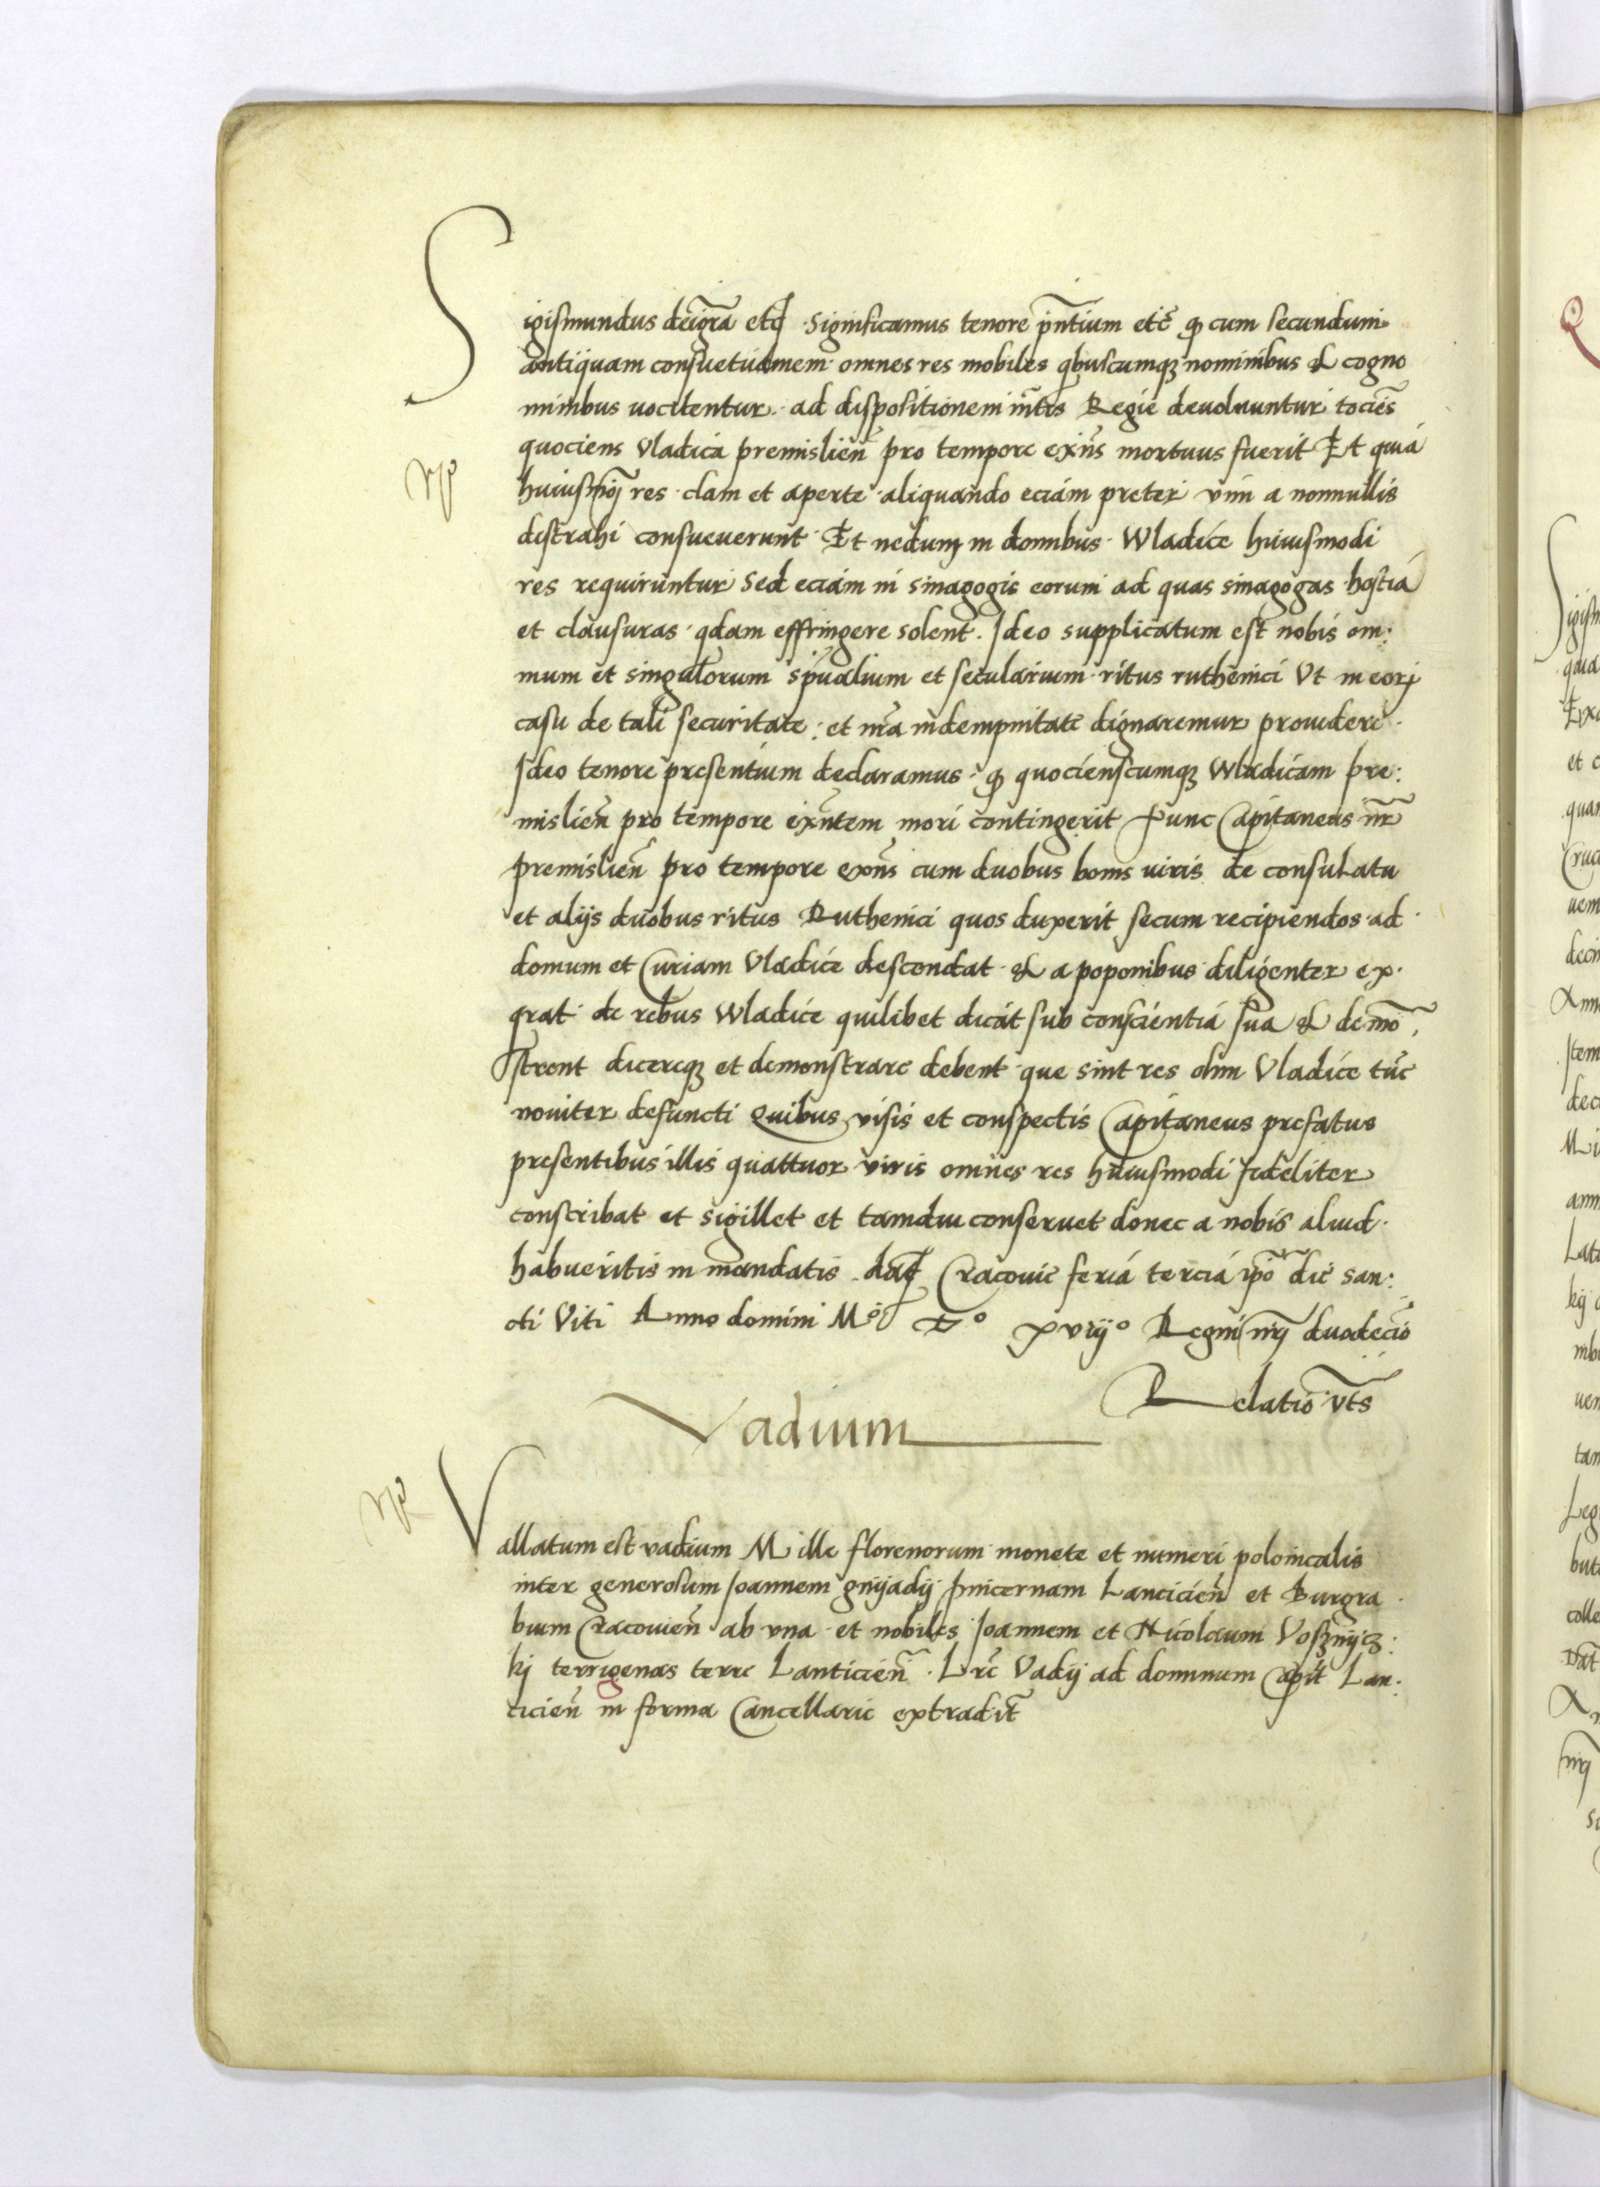 Sigismundus dei gra etc Significamus tenore pntium etc qd cum secundum
antiquam consuetudinem omnes res mobiles qbuscumqz nominibus et cogno
minibus vocitentur ad dispositionem mtis Regie devolvuntur tociens
quociens Vladica premislien pro tempore exns mortuus fuerit Et quia
huiusmoi res clam et aperte aliquando eciam preter vim a nonnullis
distrahi consueverunt Et nedum in domibus Wladice huiusmodi
res requiruntur Sed eciam in sinagogis eorum ad quas sinagogas hostia
et clausuras qdam effringere solent. Ideo supplicatum est nobis om:
nium et singulorum spualium et secularium ritus ruthenici Vt in eorz
casu de tali securitate: et nra indempnitate dignaremur providere
Ideo tenore presentium declaramus qd quocienscumqz Wladicam pre:
mislien pro tempore exntem mori contingerit Tunc Capitaneus nr
premislien pro tempore exns cum duobus bonis viris de consulatu
et alijs duobus ritus Ruthenici quos duxerit secum recipiendos ad
domum et Curiam Vladice descendat et a poponibus diligenter ex
qrat de rebus Wladice quilibet dicat sub conscientia sua et demo
strent dicereqz et demonstrare debent que sint res olim Vladice tuc
noviter defuncti Quibus visis et conspectis Capitaneus prefatus
presentibus illis quattuor viris omnes res huiusmodi fideliter
conscribat et sigillet et tamdiu conservet donec a nobis aliud
habueritis in mandatis dat Cracovie feria tercia ipo die san:
cti Viti Anno domini Mo Do xviijo Regni nrj duodecio
Relatio vts
Vadium
Vallatum est vadium Mille florenorum monete et numeri polonicalis
inter generosum Joannem gnyady pincernam Lancicien et Burgra
bium Cracovien ab vna et nobiles Joannem et Nicolaum Vosznycz:
kj terrigenas terre Lanticien. Lre Vadij ad dominum Capit Lan:
ticien in forma Cancellarie extradit